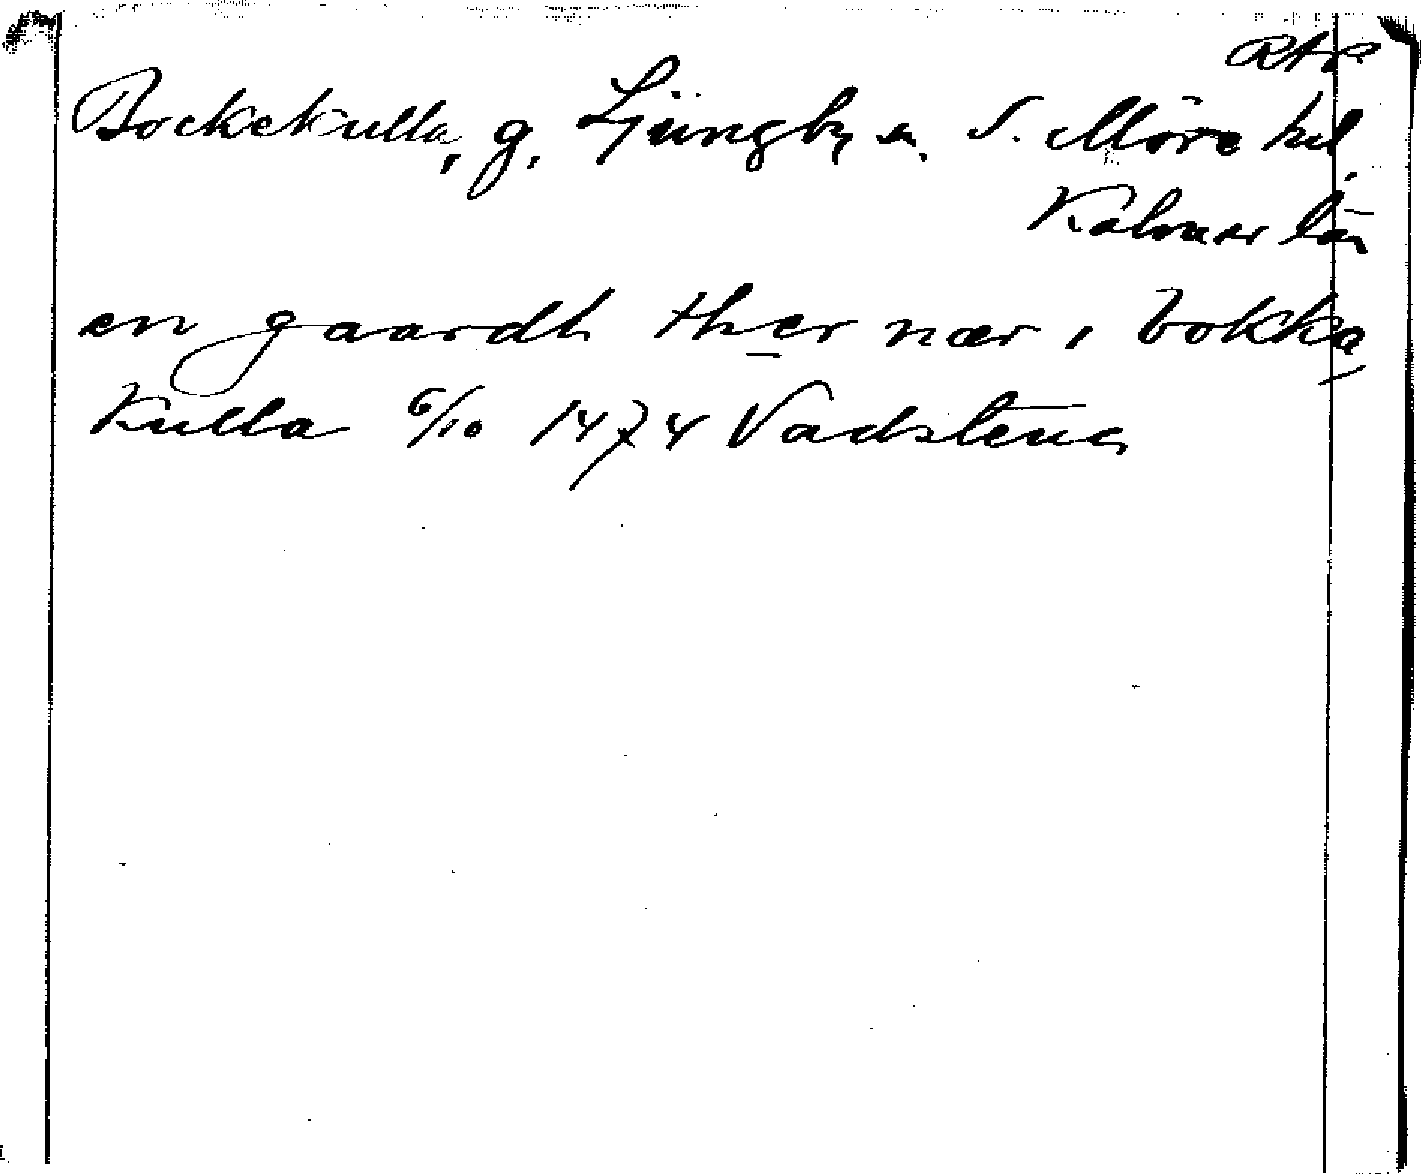 RAP
Bockekulla, g. Ljungby sn. S. Möre hd.
Kalmar län
en gaardh ther nær i bokka
kulla 6/10 1474 Vadstena